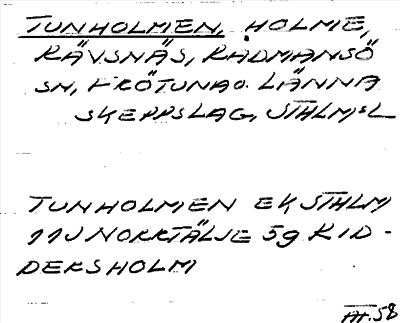 TUNHOLMEN, HOLME,
RÄVSNÄS, RÅDMANSÖ
SN, FRÖTUNA O. LÄNNA
SKEPPSLAG, STHLMSL
TUNHOLMEN EK STHLM
11J NORRTÄLJE 5g RID-
DERSHOLM
58